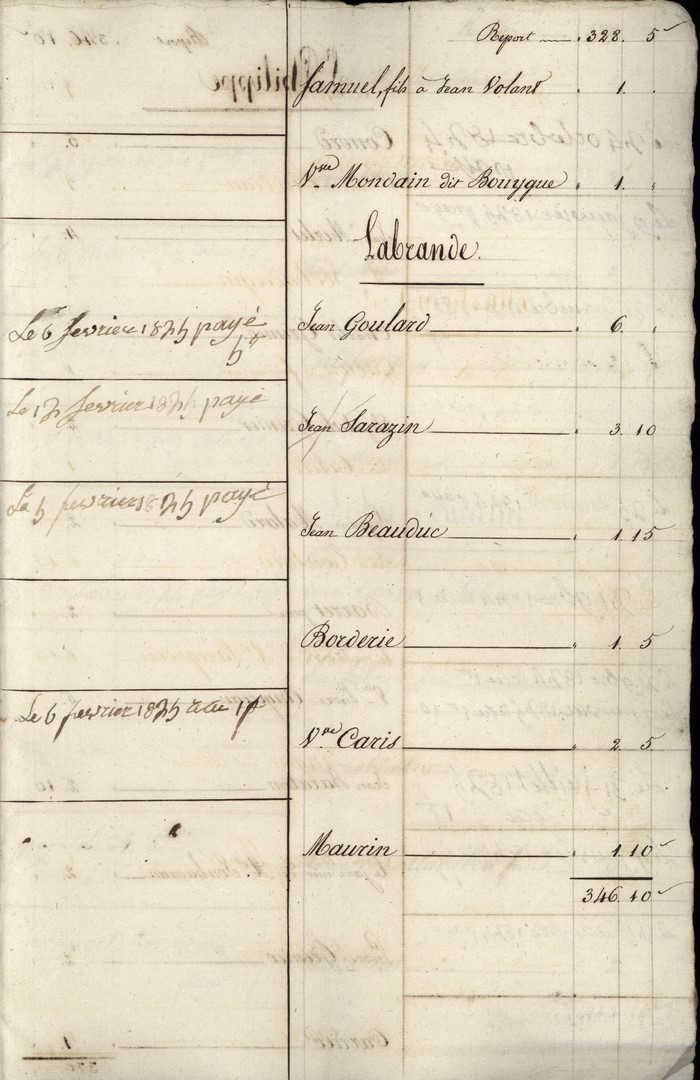 Report 328. 5
Samuel, fils à Jean Volant 1.
Vve Mondain dit Bouygue 1.
Labrande.
Le 6 fevrier 1825 payé
5#
Jean Goulard 6.
Le 13 fevrier 1825 payé
Jean Sarazin 3. 10
Le 5 fevrier 1825 payé
Jean Beauduc 1. 15
Borderie 1. 5
Le 6 fevrier 1825
Vve Caris 2. 5
Maurin 1. 10
346. 10